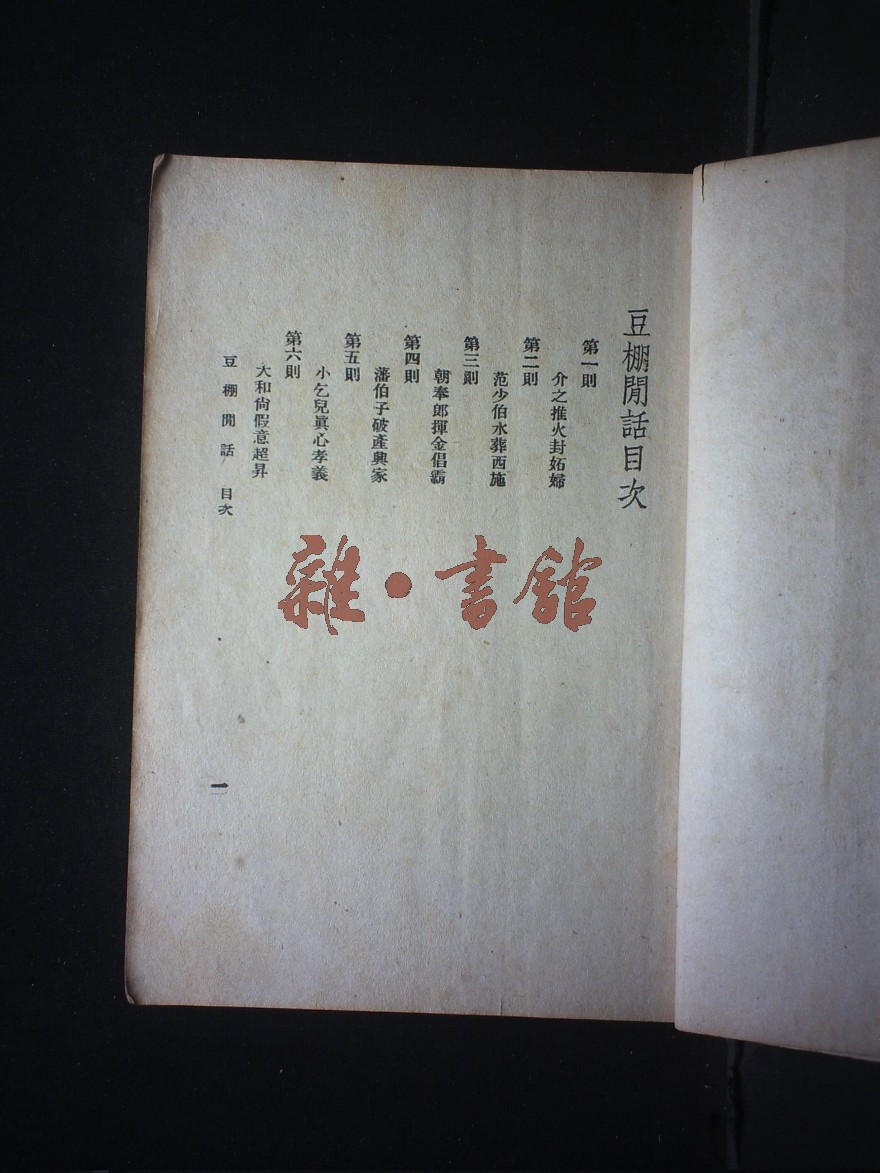 豆棚閒話目次
第一則
介之推火封妬婦
第二則
范少伯水葬西施
第三則
朝奉郎揮金倡霸
第四則
藩伯子破產興家
第五則
小乞兒眞心孝義
第六則
大和尙假意超昇
豆棚閒話 目次
一
雜·書館